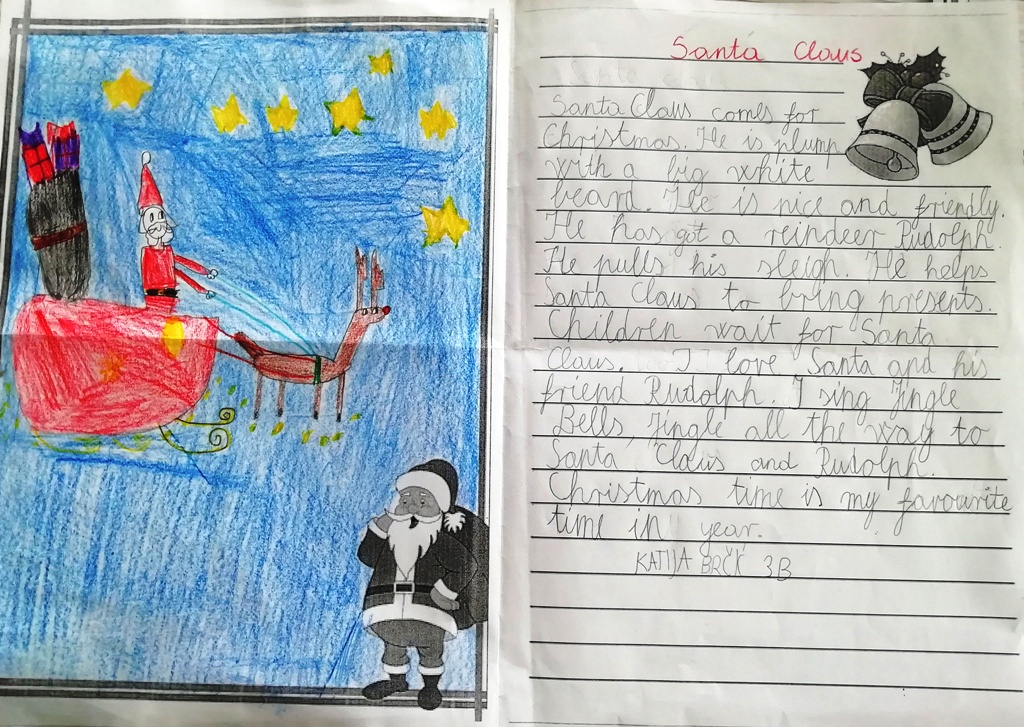 Santa Claus
Santa Claus comes for
Christmas. He is plump
with a big white
beard. He is nice and friendly.
He has got a reindeer Rudolph.
He pulls his sleigh. He helps
Santa Claus to bring presents.
Children wait for Santa
Claus. I love Santa and his
friend Rudolph. I sing Jingle
Bells, Jingle all the way to
Santa Claus and Rudolph.
Christmas time is my favourite
time in year.
KATIJA BRČIĆ 3B